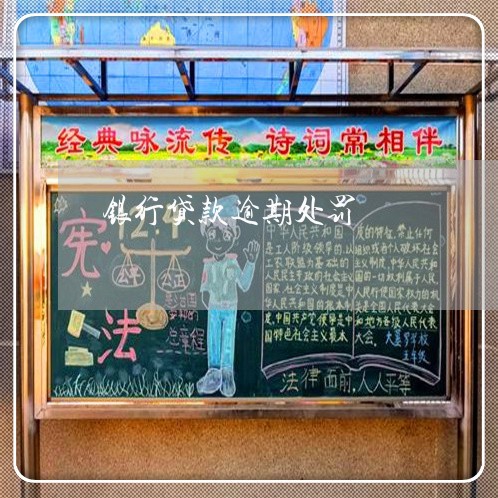 经典咏流传 诗词常相伴
銀行貸款逾期处罚
宪法
12.4
公平
公正
总章程
中华人民共和国
是工人阶级领导的,以
工农联盟为基础的
人民民主专政的社会主义
国家.社会主义制度是中
华人民共和国的根本制
度.中国共产党领导是中
国特色社会主义最本
质的特征.禁止任何
组织或者个人破坏社会
主义制度.中华人民共和
国的一切权利属于人民.
人民行使国家权力的机
关是全国人民代表大会
和地方各级人民代表
大会.
学校
五年级
法律面前,人人平等